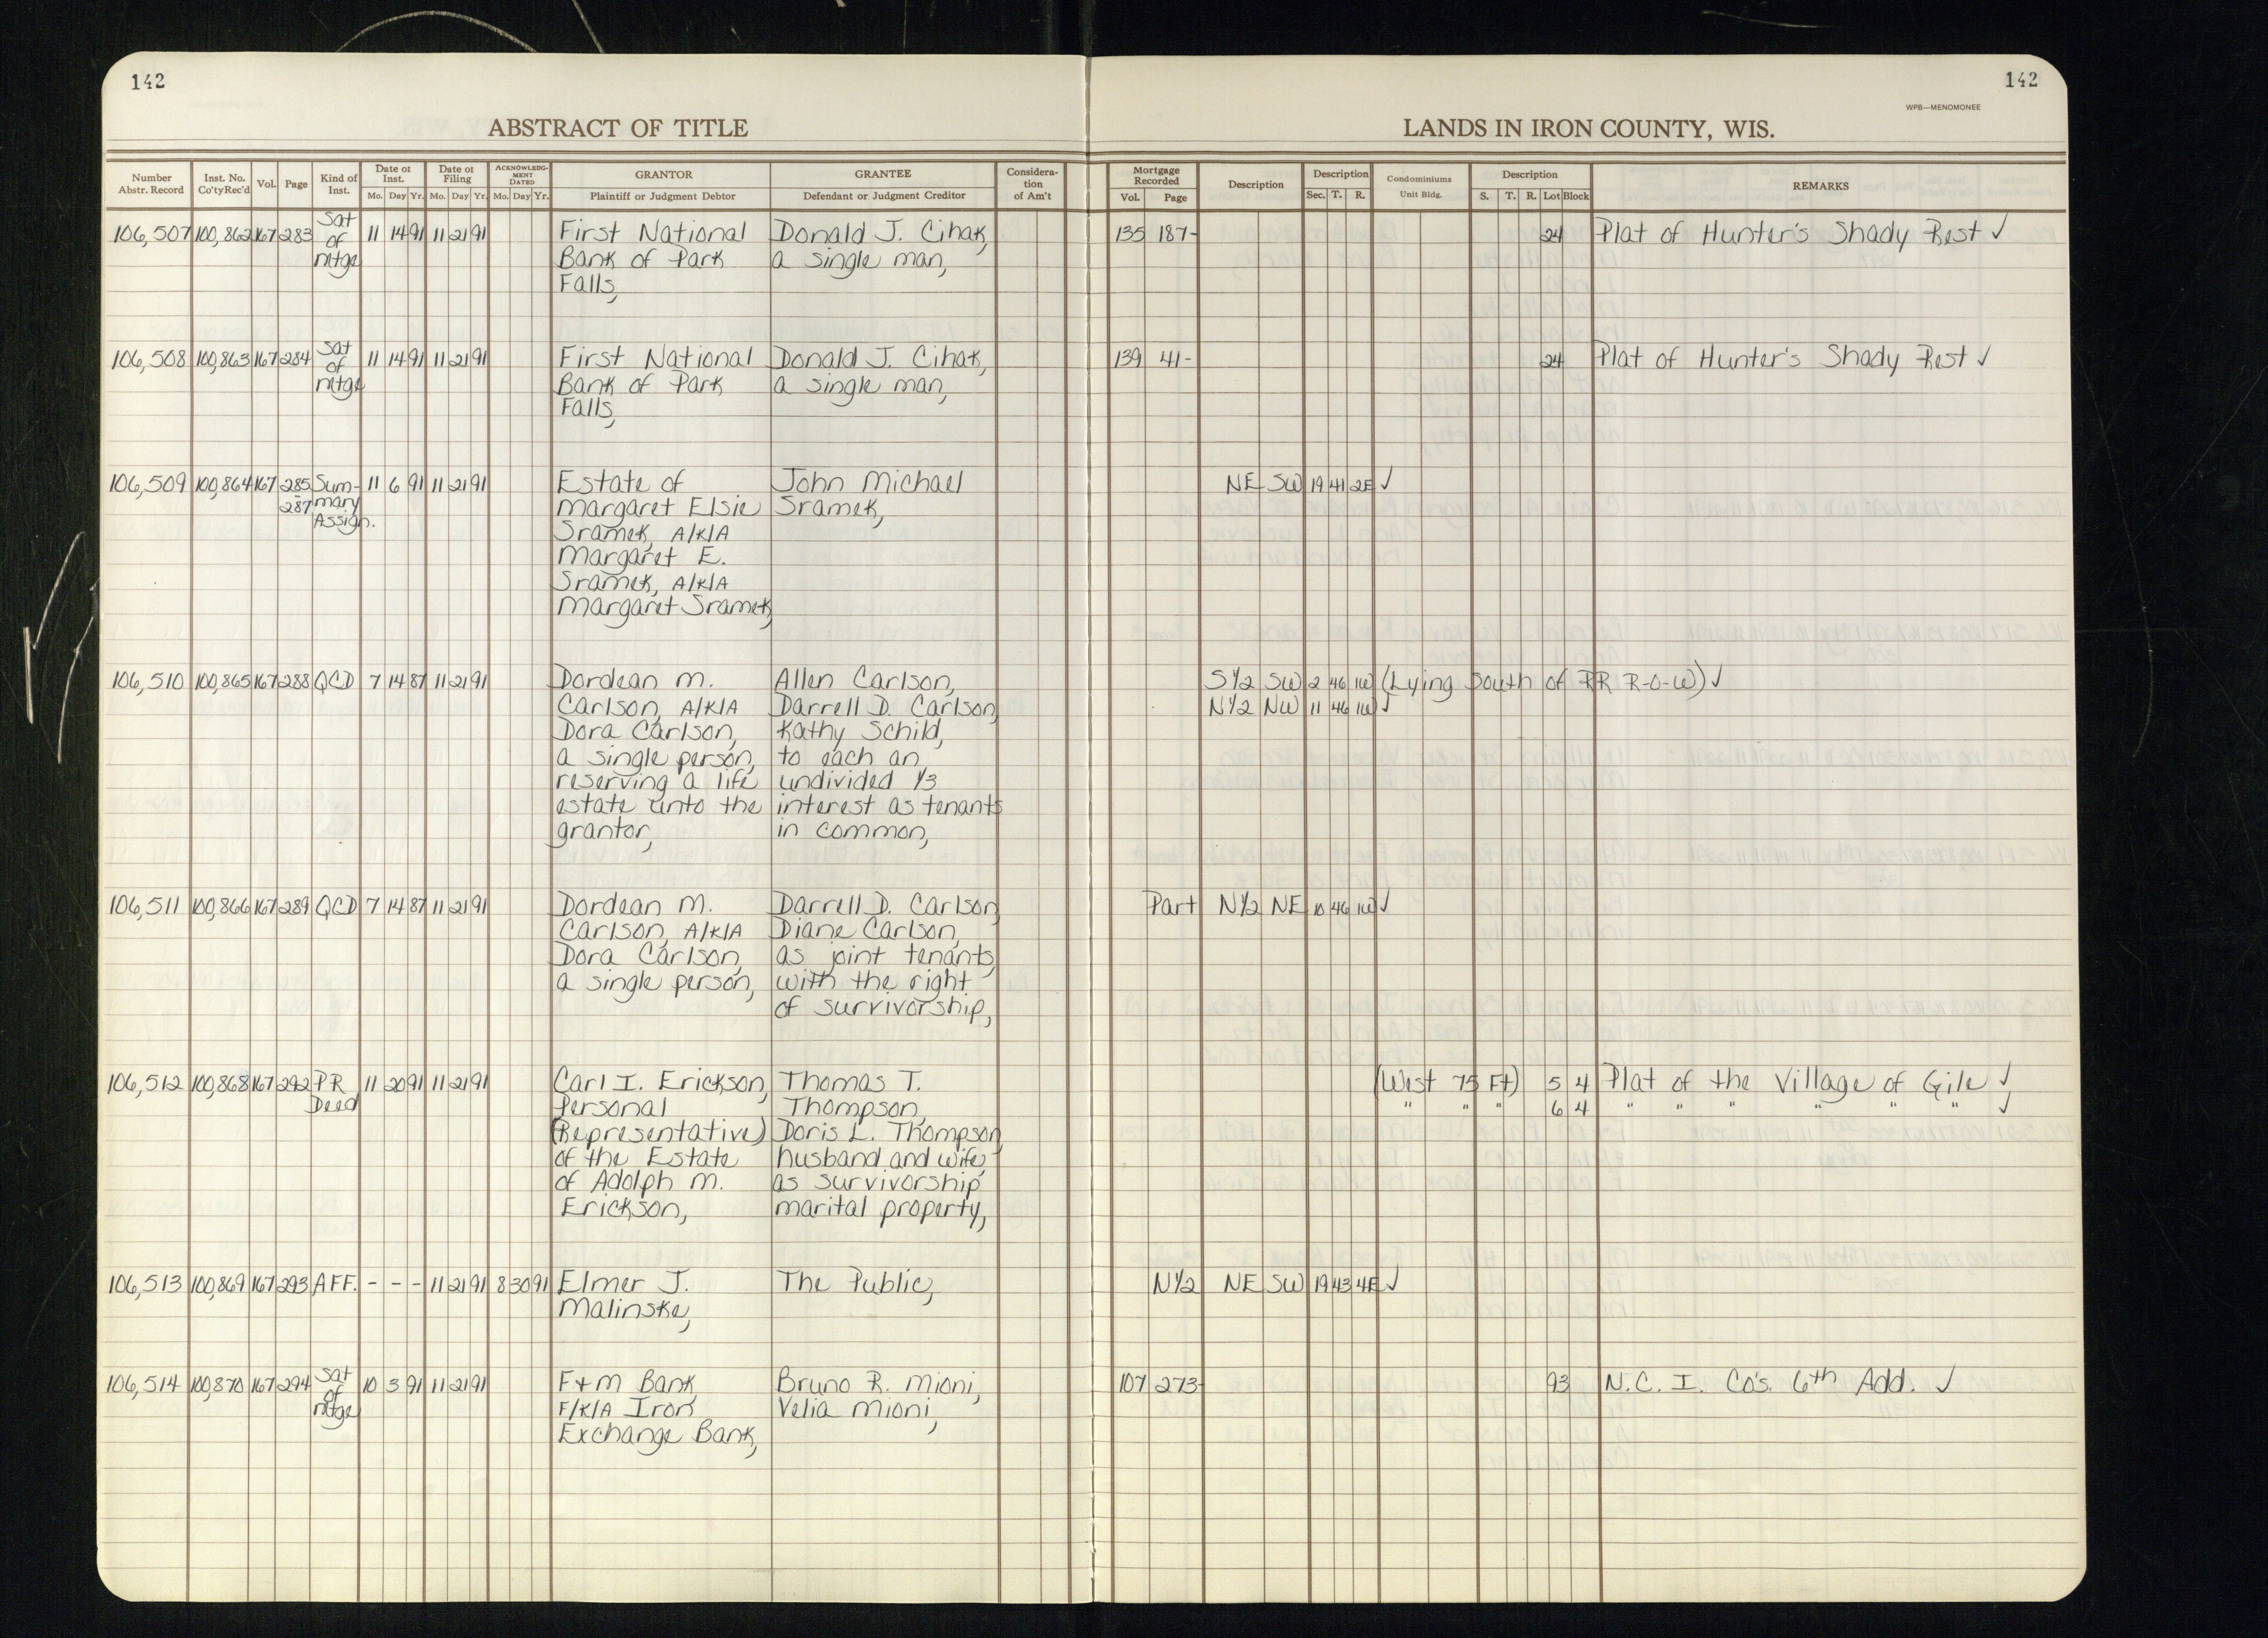 142
142
WPB—MENOMONEE
ABSTRACT OF TITLE
LANDS IN IRON COUNTY, WIS.
Number Abstr. Record | Inst. No. Co'ty Rec'd | Vol. | Page | Kind of Inst. | Date of Inst. Mo. Day Yr. | Date of Filing Mo. Day Yr. | ACKNOWLEDGMENT DATED Mo. Day Yr. | GRANTOR Plaintiff or Judgment Debtor | GRANTEE Defendant or Judgment Creditor | Consideration of Am't | Mortgage Recorded Vol. Page | Description | Description Sec. T. R. | Condominiums Unit Bldg. | Description S. T. R. Lot Block | REMARKS
106,507 100,862 167 283 Sat 11 14 91 11 21 91 First National Donald J. Cihak, 135 187- 24 Plat of Hunter's Shady Rest ✓
of Bank of Park a single man,
mtge Falls,
106,508 100,863 167 284 Sat 11 14 91 11 21 91 First National Donald J. Cihak, 139 41- 24 Plat of Hunter's Shady Rest ✓
of mtge Bank of Park a single man,
Falls,
106,509 100,864 167 285 Sum- 11 6 91 11 21 91 Estate of John Michael NE SW 19 41 2E ✓
-287 mary Margaret Elsie Sramek,
Assign. Sramek, A/K/A
Margaret E.
Sramek, A/K/A
Margaret Sramek,
106,510 100,865 167 288 QCD 7 14 87 11 21 91 Dordean M. Allen Carlson, S1/2 SW 2 46 1W (Lying South of RR R-O-W) ✓
Carlson, A/K/A Darrell D. Carlson, N1/2 NW 11 46 1W ✓
Dora Carlson, Kathy Schild,
a single person, to each an
reserving a life undivided 1/3
estate unto the interest as tenants
grantor, in common,
106,511 100,866 167 289 QCD 7 14 87 11 21 91 Dordean M. Darrell D. Carlson, Part N1/2 NE 10 46 1W ✓
Carlson, A/K/A Diane Carlson,
Dora Carlson, as joint tenants
a single person, with the right
of survivorship,
106,512 100,868 167 292 PR 11 20 91 11 21 91 Carl I. Erickson, Thomas T. (West 75 Ft) 5 4 Plat of the Village of Gile ✓
Deed Personal Thompson, " " " 6 4 " " " " " " ✓
(Representative) Doris L. Thompson,
of the Estate husband and wife,
of Adolph M. as survivorship
Erickson, marital property,
106,513 100,869 167 293 AFF. - - - 11 21 91 8 30 91 Elmer J. The Public, N1/2 NE SW 19 43 4E ✓
Malinske,
106,514 100,870 167 294 Sat 10 3 91 11 21 91 F+M Bank, Bruno R. Mioni, 107 273- 93 N.C.I. Co's. 6th Add. ✓
of F/K/A Iron Velia Mioni,
mtge Exchange Bank,